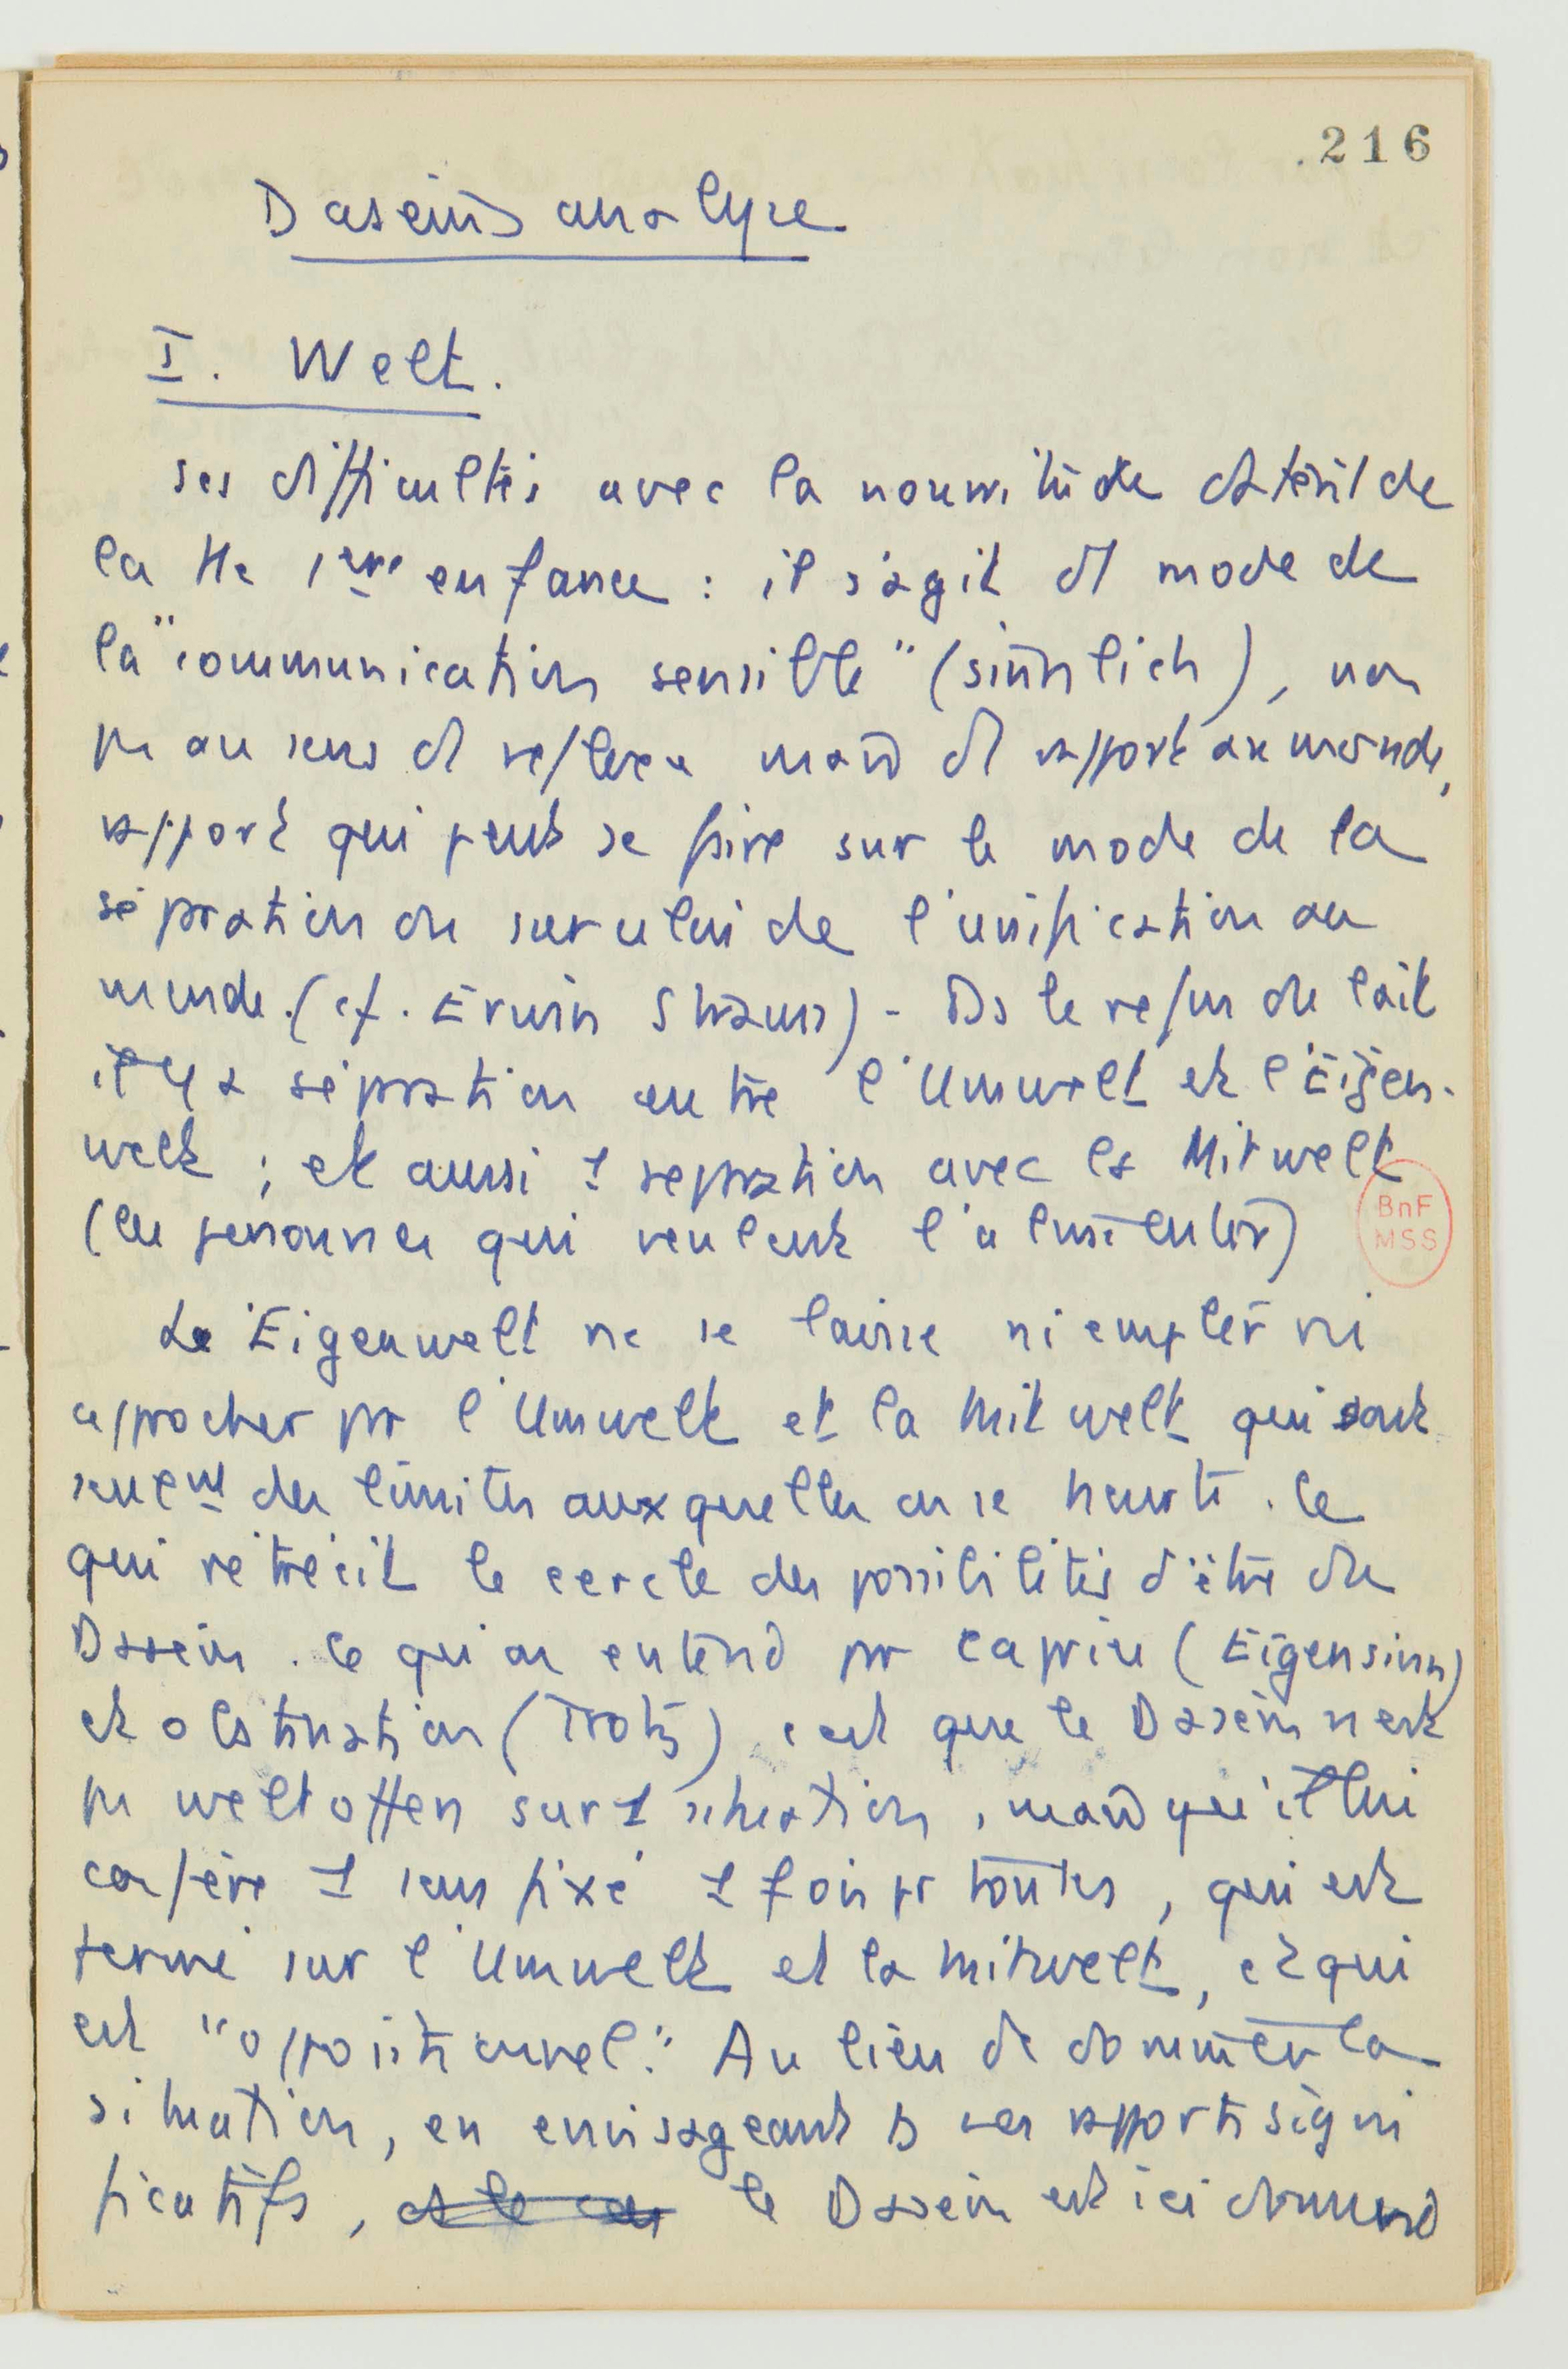 216
Daseins analyse
I. Welt.
Ses difficultés avec la nourriture datent de
la tte 1ère enfance : il s'agit d'1 mode de
la "communication sensible" (sinnlich), non
pas au sens d'1 reflexe mais d'1 rapport au monde,
rapport qui peut se faire sur le mode de la
séparation ou sur celui de l'unification au
monde. (cf. Erwin Straus) - Ds le refus du lait
il y a séparation entre l'Umwelt et l'Eigen-
welt ; et aussi 1 séparation avec la Mitwelt
(les personnes qui veulent l'alimenter)
Le Eigenwelt ne se laisse ni empter ni
approcher par l'Umwelt et la Mitwelt qui sont
seulmt des limites auxquelles on se heurte. Ce
qui rétrécit le cercle des possibilités d'être du
Dasein. Ce qu'on entend par caprice (Eigensinn)
et obstination (Trotz) c'est que le Dasein n'est
pas weltoffen sur 1 situation, mais qu'il lui
confère 1 sens fixé 1 fois pr toutes, qui est
fermé sur l'Umwelt et la Mitwelt, et qui
est "oppositionnel". Au lieu de dominer la
situation, en envisageant ds ses rapports signi
ficatifs, le Dasein est ici dominé
BnF
MSS